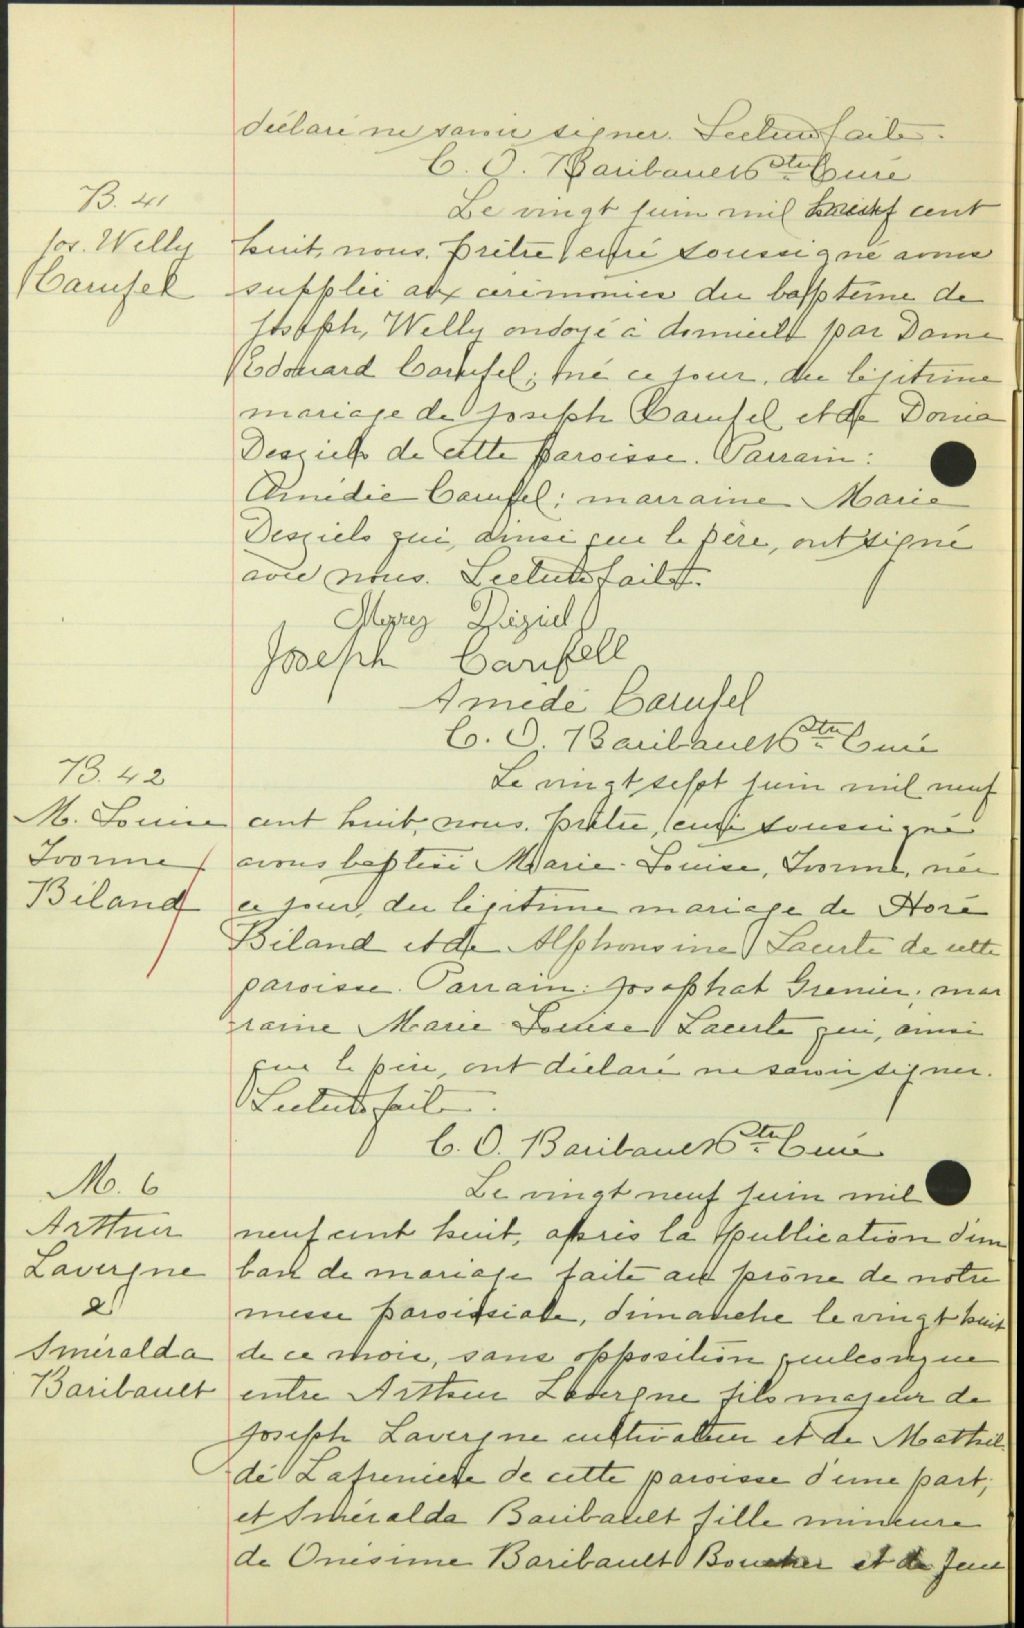 déclaré ne savoir signer. Lecture faite.
C. O. Baribault Ptre Curé
B. 41
Jos. Welly
Carufel
Le vingt juin mil neuf cent
huit, nous, prêtre, curé soussigné avons
supplée aux cérémonies du baptême de
Joseph, Welly ondoyé à domicile par Dame
Edouard Carufel; né ce jour, du légitime
mariage de Joseph Carufel et de Donia
Desziels de cette paroisse. Parrain:
Amédie Carufel; marraine Marie
Desziels qui, ainsi que le père, ont signé
avec nous. Lecture faite.
Déziel
Joseph Carufell
Amédé Carufel
C. O. Baribault Ptre Curé
B. 42
M. Louise
Ivonne
Béland
Le vingt sept juin mil neuf
cent huit, nous, prêtre, curé soussigné
avons baptisé Marie-Louise, Ivonne, née
ce jour, du légitime mariage de Horé
Béland et de Alphonsine Lacerte de cette
paroisse. Parrain: Josaphat Grenier; mar
raine Marie Louise Lacerte qui, ainsi
que le père, ont déclaré ne savoir signer.
Lecture faite.
C. O. Baribault Ptre Curé
M. 6
Arthur
Lavergne
&
Sméralda
Baribault
Le vingt neuf juin mil
neuf cent huit, après la publication d'un
ban de mariage faite au prône de notre
messe paroissiale, dimanche le vingt huit
de ce mois, sans opposition quelconque
entre Arthur Lavergne fils majeur de
Joseph Lavergne cultivateur et de Mathil-
de Lafreniere de cette paroisse d'une part;
et Sméralda Baribault fille mineure
de Onésime Baribault Boucher et de feue